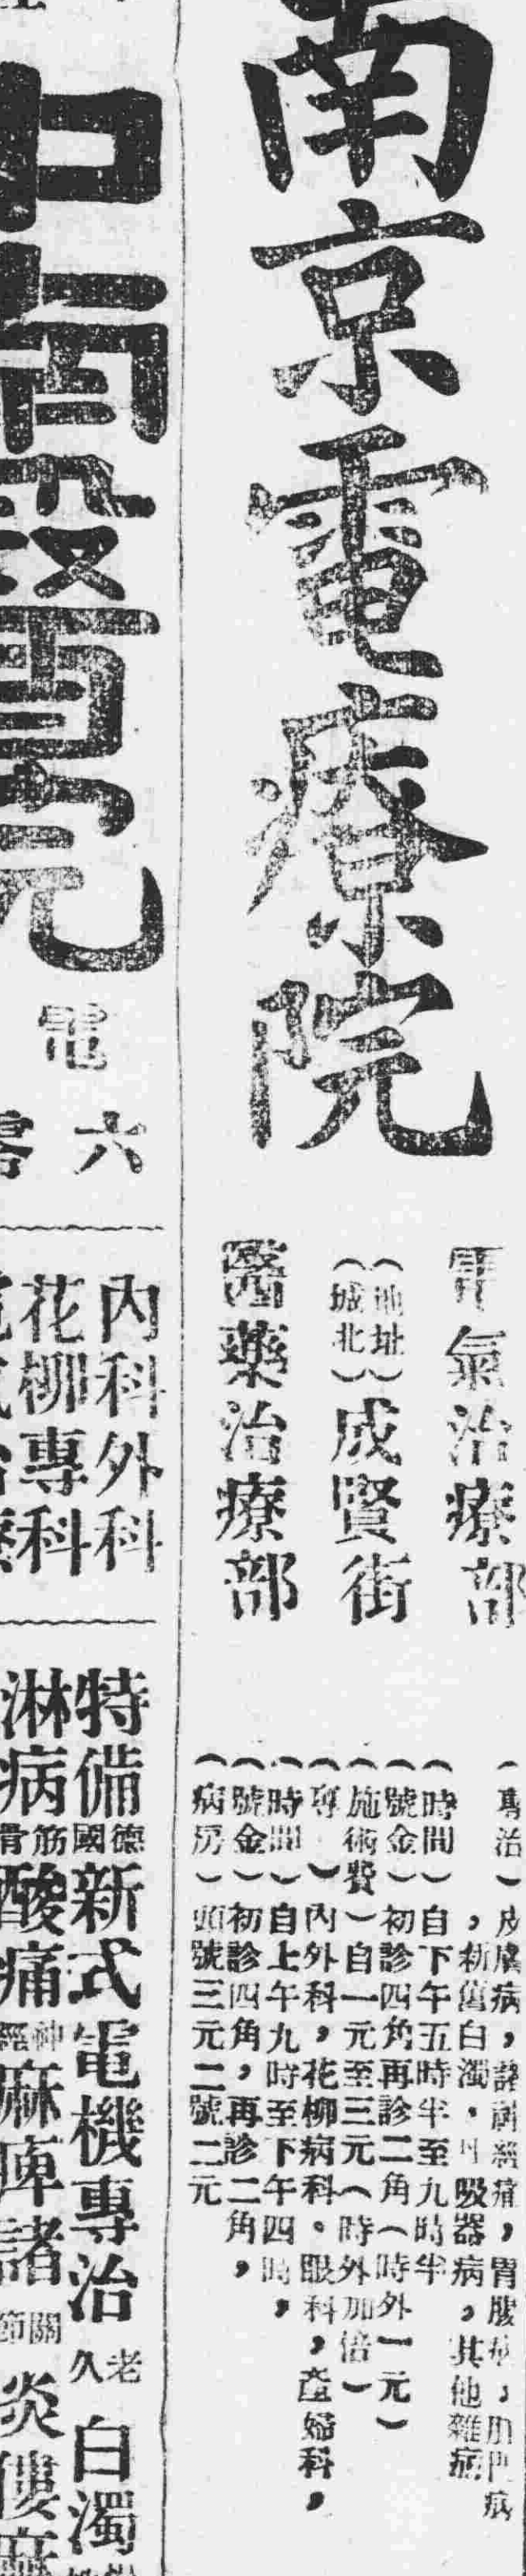 南京電療院
電氣治療部
(地址)
(城北)
成賢街
醫藥治療部
(專治)皮膚病,諸神經痛,胃腸病,肛門病
,新舊白濁,呼吸器病,其他雜病
(時間)自下午五時半至九時半
(號金)初診四角再診二角(時外一元)
(施術費)自一元至三元(時外加倍)
(專)內外科,花柳病科。眼科,產婦科,
(時間)自上午九時至下午四時,
(號金)初診四角,再診二角,
(病房)頭號三元二號二元
醫院
電
六
內科外科
花柳專科
特備德國新式電機專治老久白濁
淋病筋骨酸痛神經麻痺諸關節炎僂麻